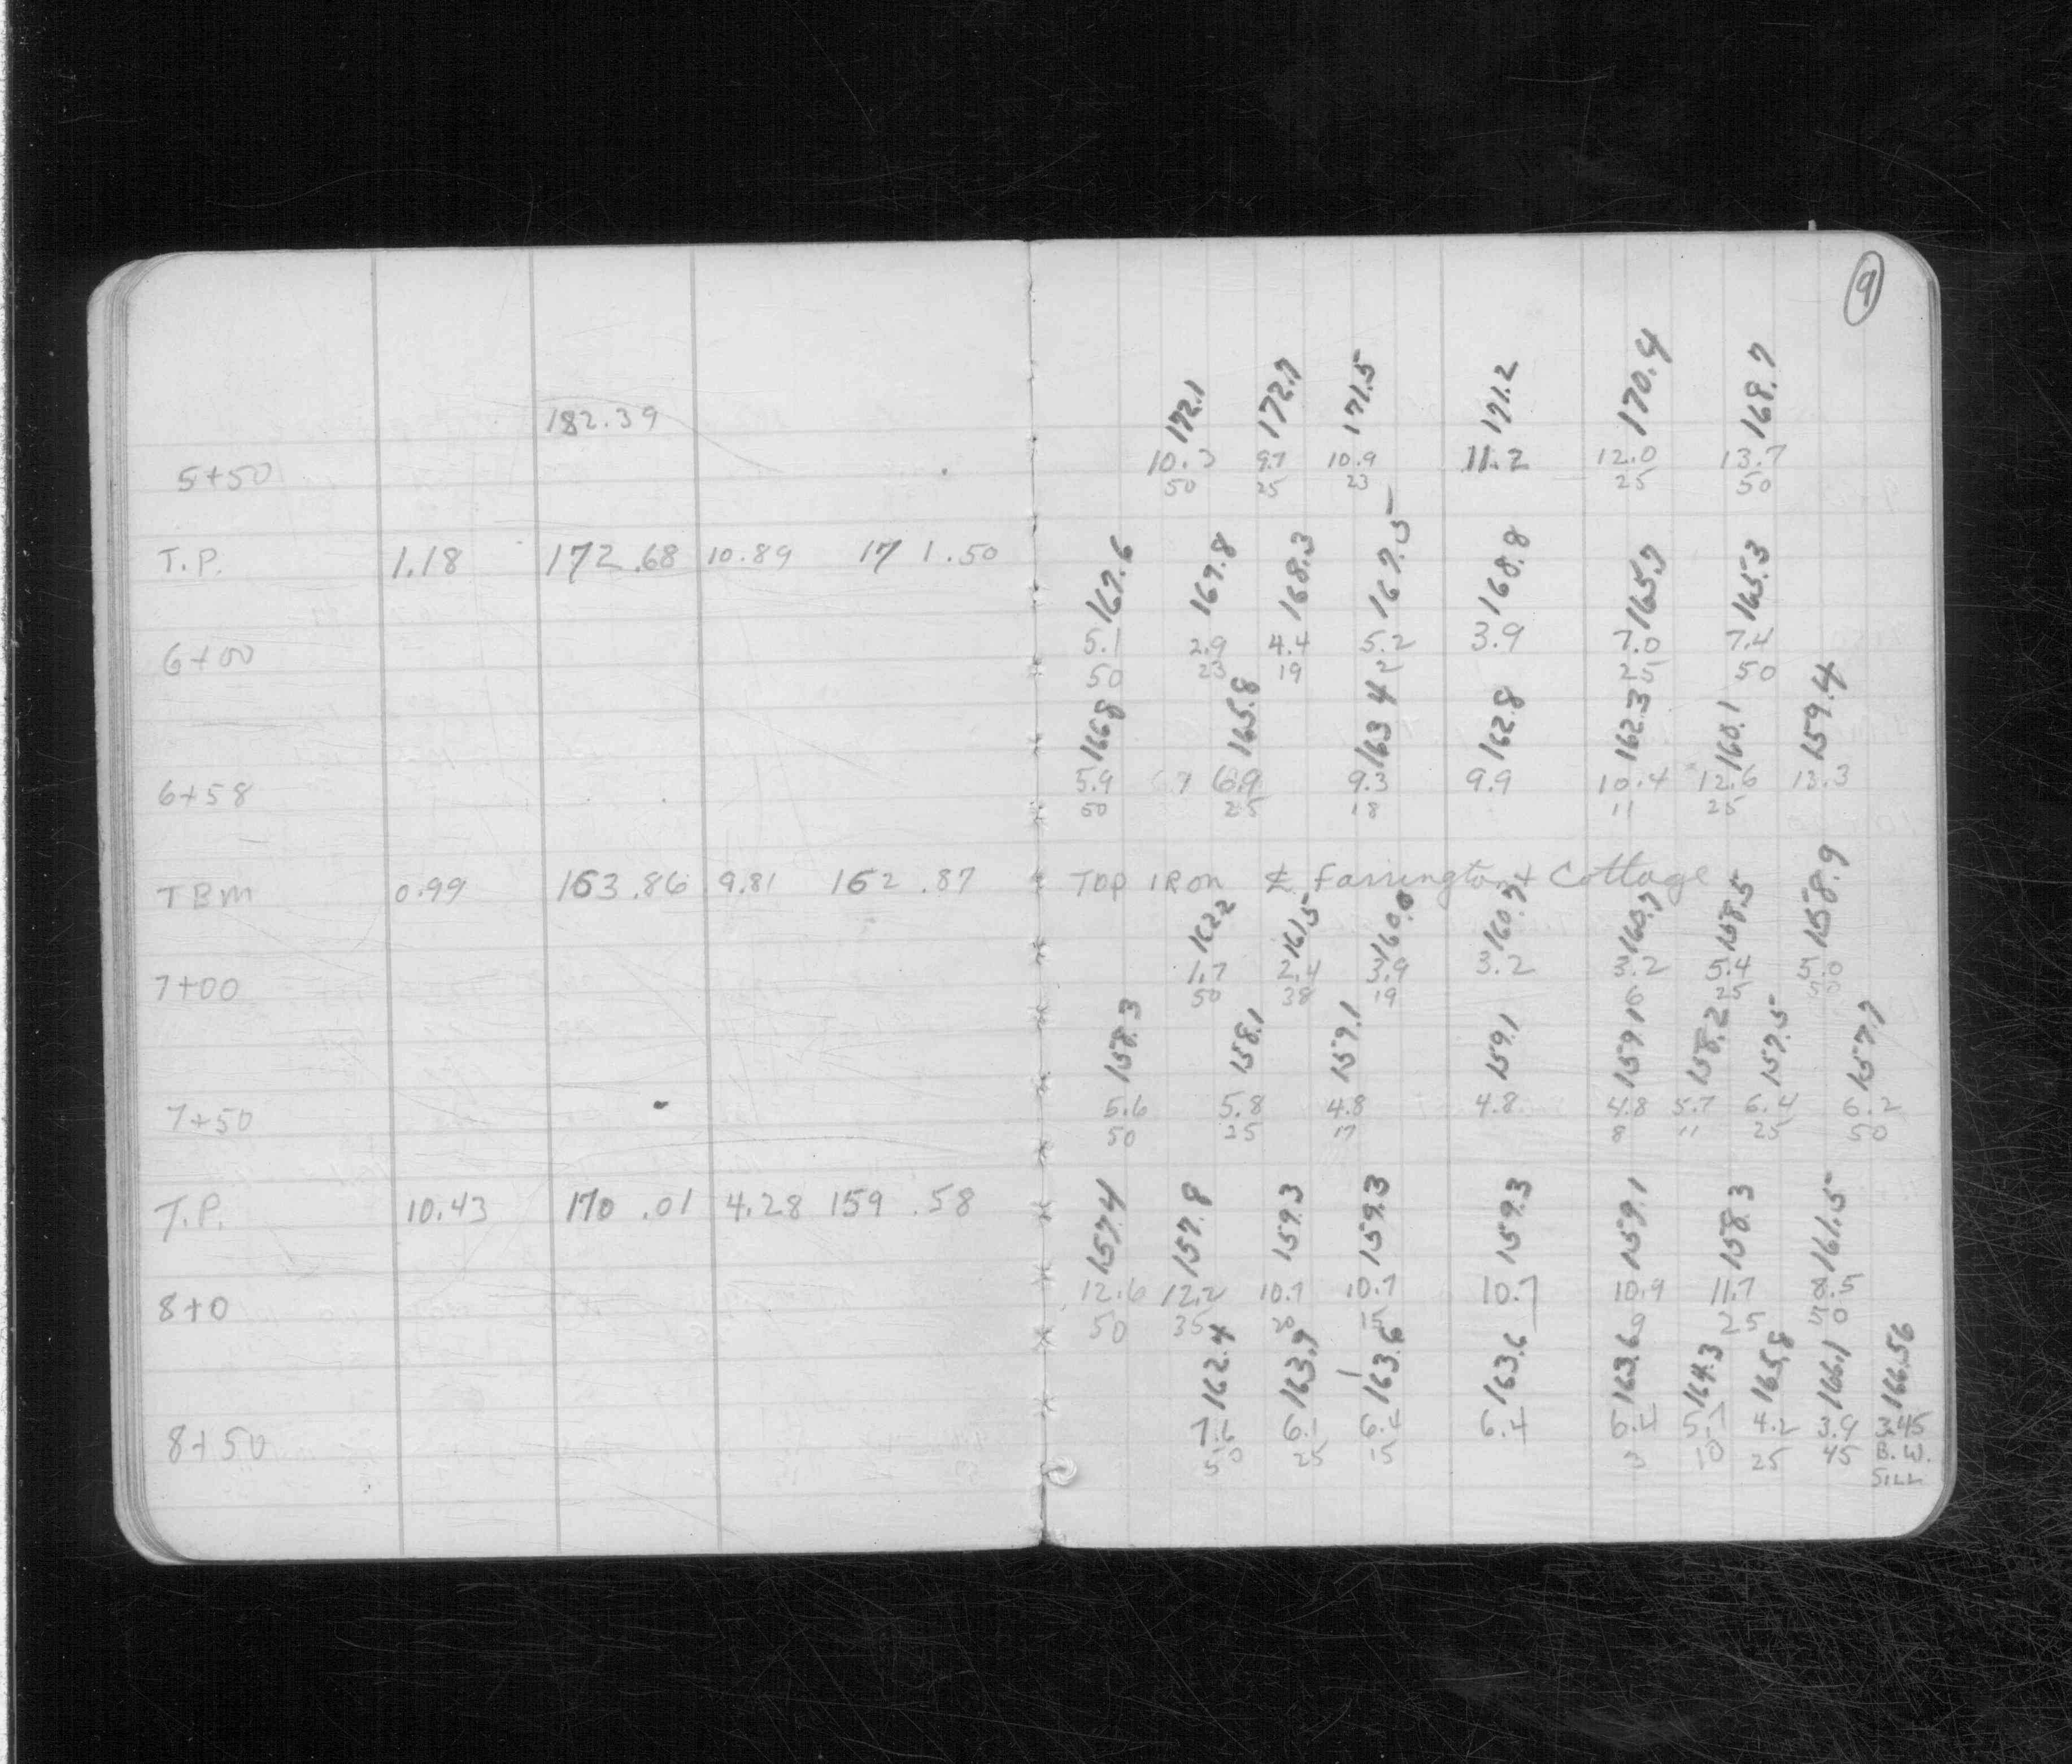 9
182.39
172.1 172.7 171.5 171.2 170.4 168.7
5+50 9.7 10.9 11.2 12.0 13.7
50 25 23 25 50
T.P. 1.18 172.68 10.89 171.50
167.6 169.8 168.3 167.5 168.8 165.7 165.3
6+00 5.1 2.9 4.4 5.2 3.9 7.0 7.4
50 23 19 2 25 50
166.8 165.8 163.4 162.8 162.3 160.1 159.4
6+58 5.9 6.9 9.3 9.9 10.4 12.6 13.3
50 25 18 11 25
TBM 0.99 163.86 9.81 162.87 TOP IRON & Farrington & Cottage
162.2 161.5 160.0 160.7 160.7 158.5 158.9
7+00 1.7 2.4 3.9 3.2 3.2 5.4 5.0
50 38 19 16 25 50
158.3 158.1 159.1 159.1 159.1 158.2 157.5 157.7
7+50 5.6 5.8 4.8 4.8 4.8 5.7 6.4 6.2
50 25 17 8 11 25 50
T.P. 10.43 170.01 4.28 159.58
157.4 157.8 159.3 159.3 159.3 159.1 158.3 161.5
8+0 12.6 12.2 10.7 10.7 10.7 10.9 11.7 8.5
50 35 20 15 9 25
162.4 163.9 163.6 163.6 163.6 164.3 165.8 166.1 166.56
8+50 7.6 6.1 6.4 6.4 6.4 5.7 4.2 3.9 3.45
50 25 15 10 25 45 B.W.
SILL